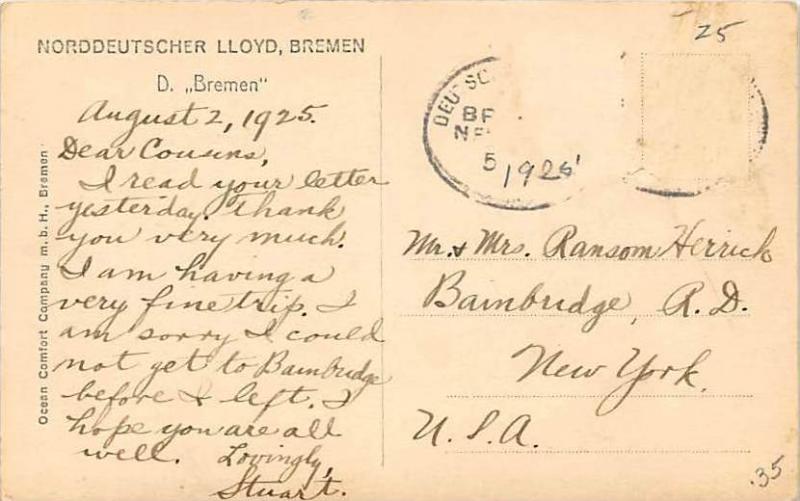 NORDDEUTSCHER LLOYD, BREMEN
D. „Bremen"
August 2, 1925.
Dear Cousins,
I read your letter
yesterday. Thank
you very much.
I am having a
very fine trip. I
am sorry I could
not get to Bainbridge
before I left. I
hope you are all
well. Lovingly,
Stuart.
Ocean Comfort Company m. b. H., Bremen
25
DEUTSC
BR
NE
5
1925
Mr. & Mrs. Ransom Herrick
Bainbridge, R. D.
New York.
U. S. A.
.35